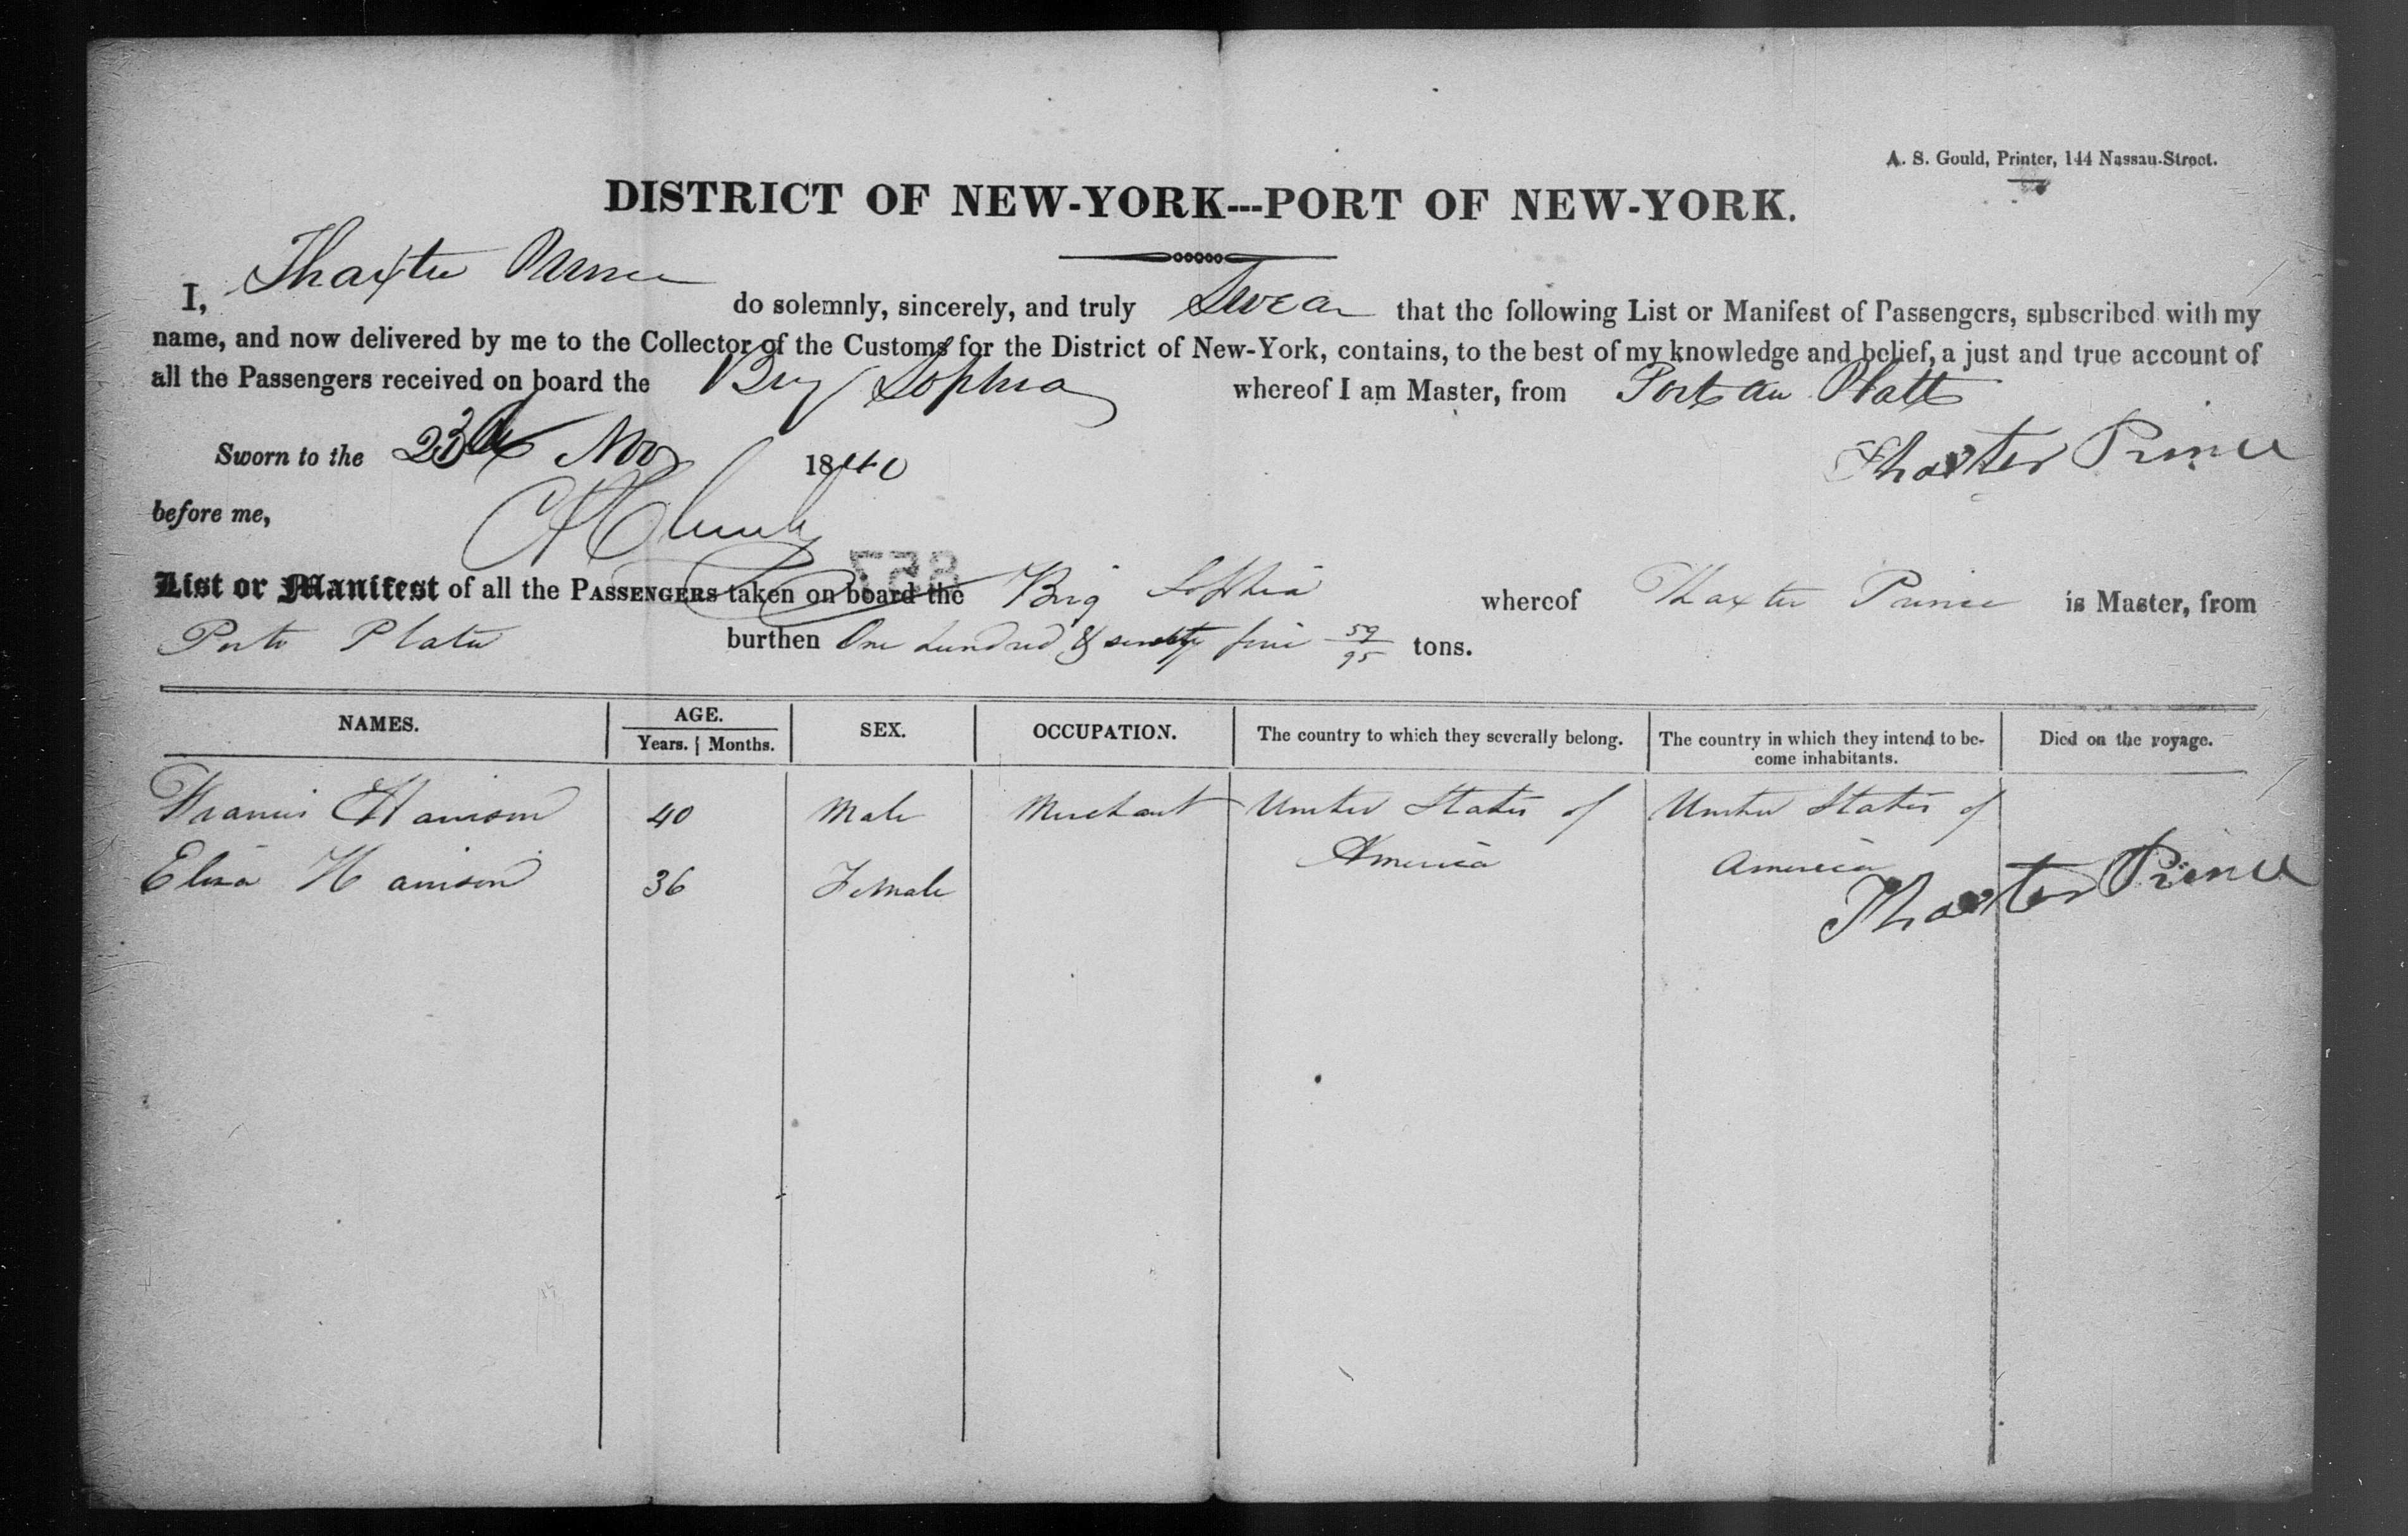 A. S. Gould, Printer, 144 Nassau-Street.
DISTRICT OF NEW-YORK---PORT OF NEW-YORK.
I, Thaxter Prince do solemnly, sincerely, and truly Swear that the following List or Manifest of Passengers, subscribed with my
name, and now delivered by me to the Collector of the Customs for the District of New-York, contains, to the best of my knowledge and belief, a just and true account of
all the Passengers received on board the Brig Sophia whereof I am Master, from Port au Platt
Sworn to the 23d Nov 1840 Thaxter Prince
before me,
List or Manifest of all the PASSENGERS taken on board the Brig Sophia whereof Thaxter Prince is Master, from
Porto Plata burthen One hundred & seventy five 59/95 tons.
NAMES. AGE. Years. Months. SEX. OCCUPATION. The country to which they severally belong. The country in which they intend to become inhabitants. Died on the voyage.
Francis Harrison 40 Male Merchant United States of America United States of America
Eliza Harrison 36 Female
Thaxter Prince